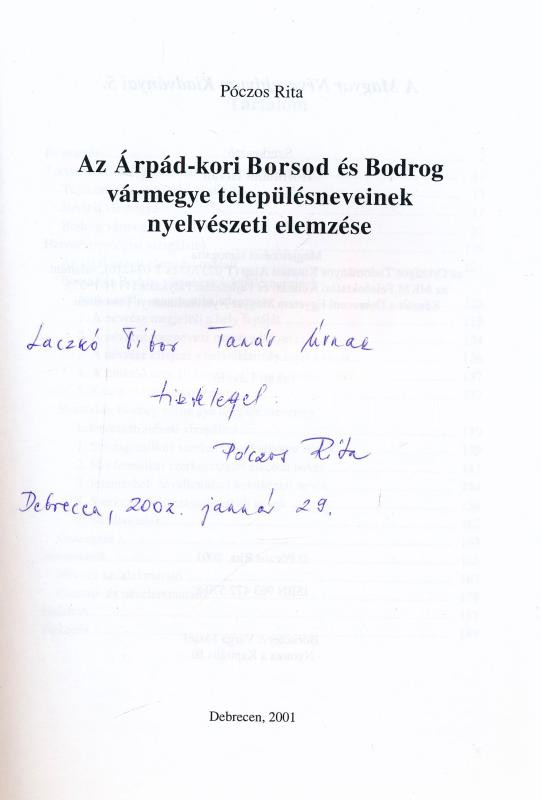 Póczos Rita
Az Árpád-kori Borsod és Bodrog
vármegye településneveinek
nyelvészeti elemzése
Laczkó Tibor Tanár Úrnak
tisztelegel:
Póczos Rita
Debrecen, 2002. január 29.
Debrecen, 2001